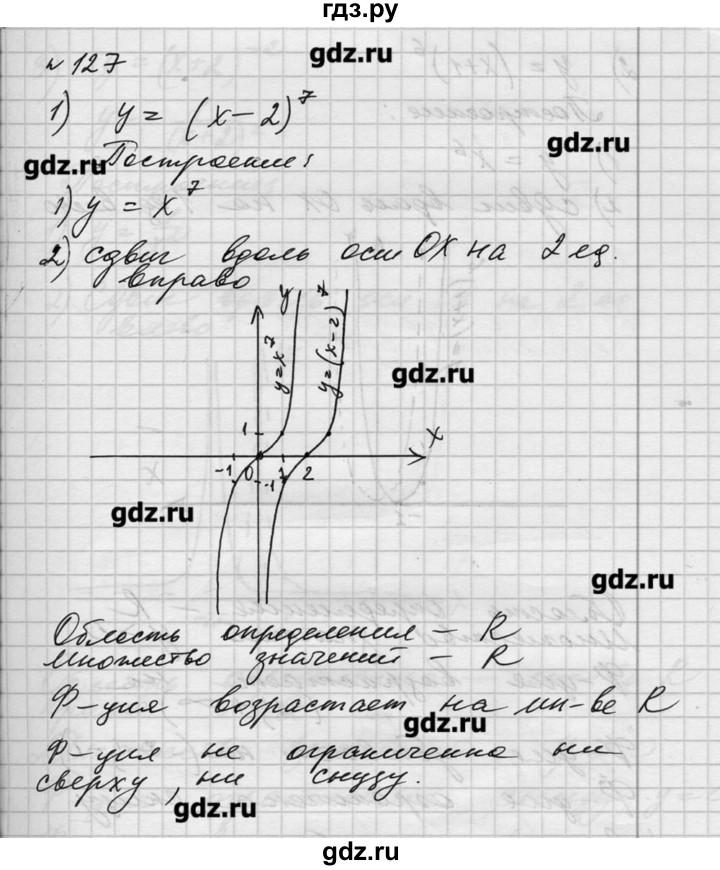 гдз.ру
gdz.ru
№ 127
1) y = (x - 2)^7
gdz.ru
gdz.ru
Построение:
1) y = x^7
2) сдвиг вдоль оси OX на 2 ед.
вправо
y
y=x^7
y=(x-2)^7
gdz.ru
1
x
-1 0 1 2
-1
gdz.ru
gdz.ru
Область определения – R
множество значений – R
Ф-ция возрастает на мн-ве R
gdz.ru
Ф-ция не ограниченна ни
сверху, ни снизу.
gdz.ru
gdz.ru